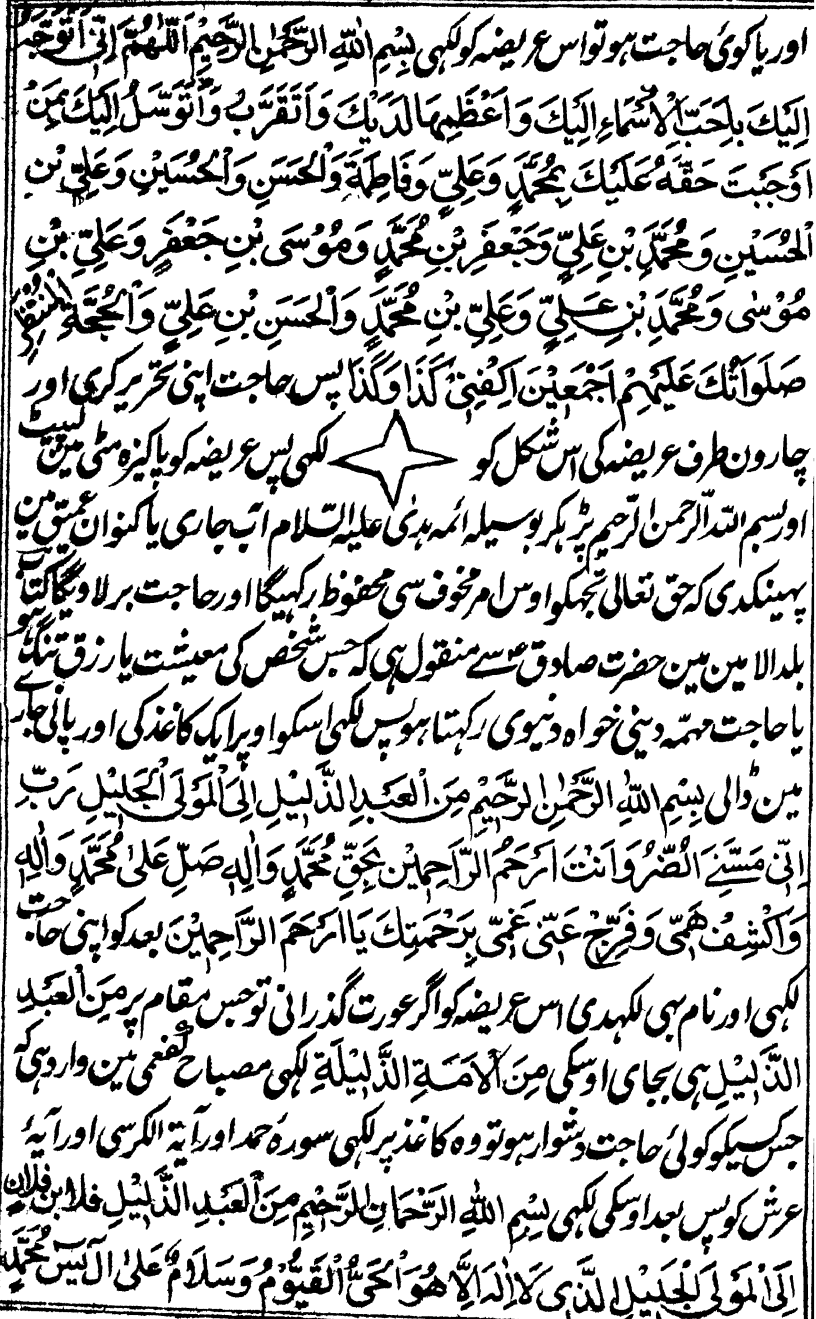 اور یا کوئی حاجت ہو تو اس عریضہ کو لکہی بِسْمِ اللهِ الرَّحْمٰنِ الرَّحِیْمِ اَللّٰهُمَّ اِنِّیْ اَتَوَجَّهُ
اِلَیْكَ بِاَحَبِّ الْاَسْمَاءِ اِلَیْكَ وَاَعْظَمِهَا لَدَیْكَ وَاَتَقَرَّبُ وَاَتَوَسَّلُ اِلَیْكَ بِمَنْ
اَوْجَبْتَ حَقَّهُ عَلَیْكَ بِمُحَمَّدٍ وَعَلِیٍّ وَفَاطِمَةَ وَالْحَسَنِ وَالْحُسَیْنِ وَعَلِیِّ بْنِ
الْحُسَیْنِ وَمُحَمَّدِ بْنِ عَلِیٍّ وَجَعْفَرِ بْنِ مُحَمَّدٍ وَمُوْسَی بْنِ جَعْفَرٍ وَعَلِیِّ بْنِ
مُوْسٰی وَمُحَمَّدِ بْنِ عَلِیٍّ وَعَلِیِّ بْنِ مُحَمَّدٍ وَالْحَسَنِ بْنِ عَلِیٍّ وَالْحُجَّةِ الْمُنْتَظَرِ
صَلَوَاتُكَ عَلَیْهِمْ اَجْمَعِیْنَ اِكْفِنِیْ كَذَا وَكَذَا پس حاجت اپنی تحریر کری اور
چارون طرف عریضہ کی اس شکل کو لکہی پس عریضہ کو پاکیزہ مٹی مین لپیٹ
اور بسم اللہ الرحمن الرحیم پڑہکر بوسیلہ ائمہ ہدی علیہ السلام آب جاری یا کنوان عمیق مین
پہینکدی کہ حق تعالی تجہکو اوس امر مخوف سی محفوظ رکہیگا اور حاجت بر لاویگا کتاب
بلد الامین مین حضرت صادق ع سے منقول ہی کہ جس شخص کی معیشت یا رزق تنگ ہو
یا حاجت مہمہ دینی خواہ دنیوی رکہتا ہو پس لکہی اسکو اوپر ایک کاغذ کی اور پانی جاری
مین ڈالی بِسْمِ اللهِ الرَّحْمٰنِ الرَّحِیْمِ مِنَ الْعَبْدِ الذَّلِیْلِ اِلَی الْمَوْلَی الْجَلِیْلِ رَبِّ
اِنِّیْ مَسَّنِیَ الضُّرُّ وَاَنْتَ اَرْحَمُ الرَّاحِمِیْنَ بِحَقِّ مُحَمَّدٍ وَاٰلِهِ صَلِّ عَلٰی مُحَمَّدٍ وَاٰلِهِ
وَاكْشِفْ هَمِّیْ وَفَرِّجْ عَنِّیْ غَمِّیْ بِرَحْمَتِكَ یَا اَرْحَمَ الرَّاحِمِیْنَ بعد کو اپنی حاجت
لکہی اور نام بہی لکہدی اس عریضہ کو اگر عورت گذرانی تو جس مقام پر مِنَ الْعَبْدِ
الذَّلِیْلِ ہی بجای اوسکی مِنَ الْاَمَةِ الذَّلِیْلَةِ لکہی مصباح کفعمی مین وارد ہی کہ
جس کسیکو کوئی حاجت دشوار ہو تو وہ کاغذ پر لکہی سورہ حمد اور آیۃ الکرسی اور آیۂ
عرش کو پس بعد اوسکی لکہی بِسْمِ اللهِ الرَّحْمَانِ الرَّحِیْمِ مِنَ الْعَبْدِ الذَّلِیْلِ فلان بن فلان
اِلَی الْمَوْلَی الْجَلِیْلِ الَّذِیْ لَا اِلٰهَ اِلَّا هُوَ الْحَیُّ الْقَیُّوْمُ وَسَلَامٌ عَلٰی اٰلِ یٰسٓ مُحَمَّدٍ